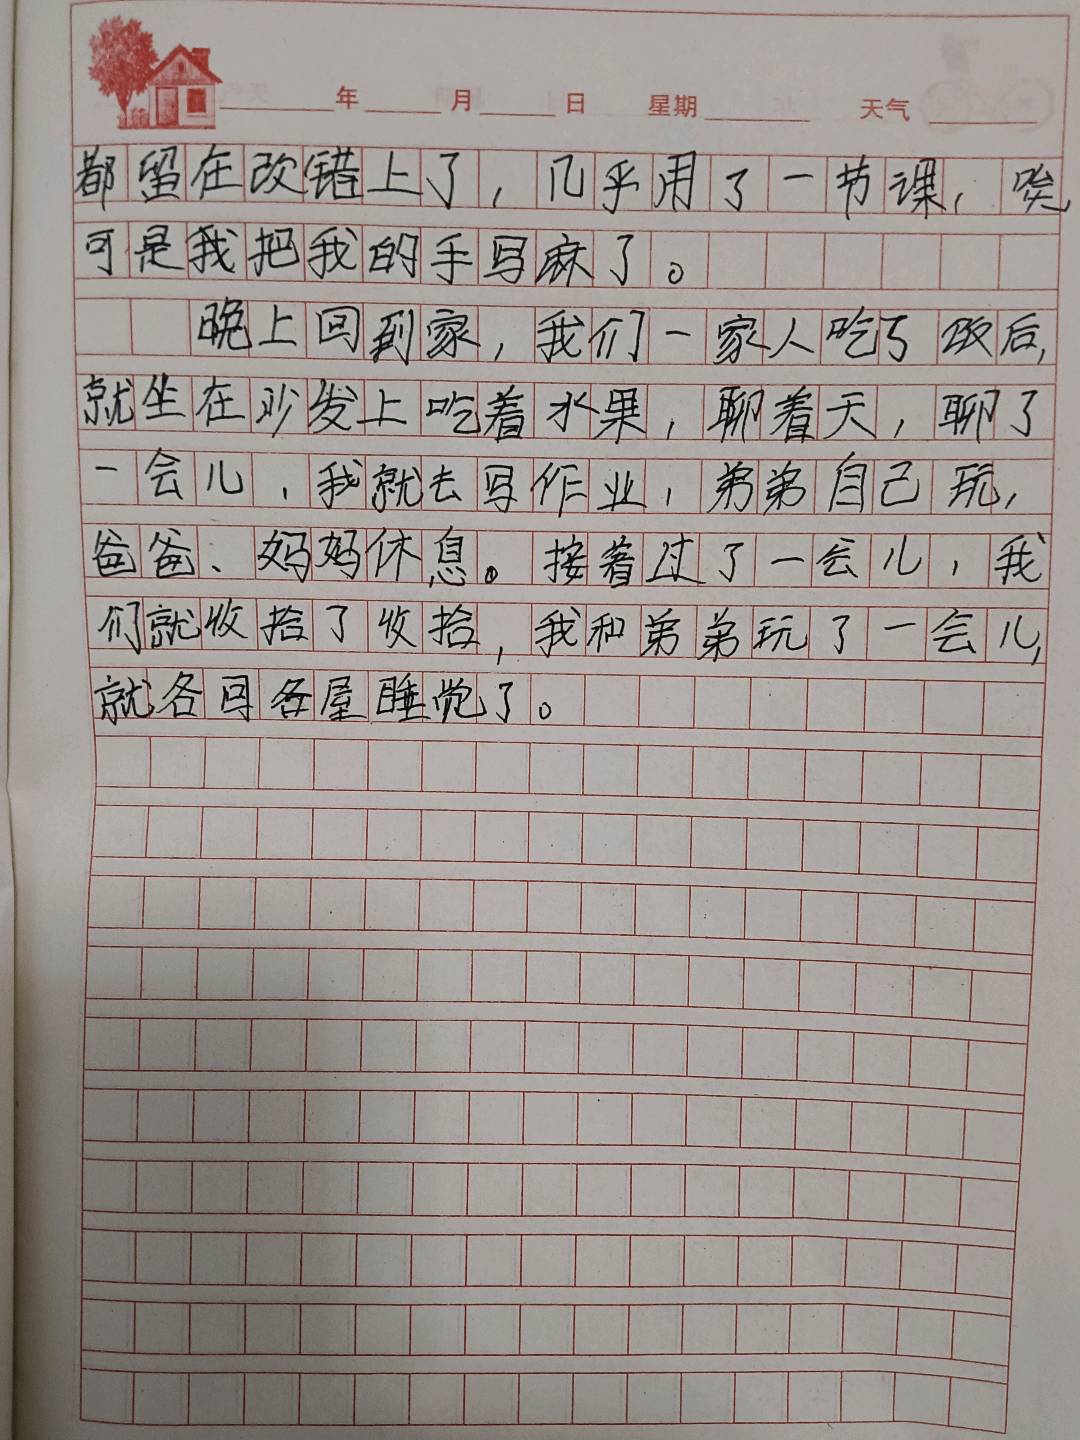 年 月 日 星期 天气
都留在改错上了，几乎用了一节课，唉
可是我把我的手写麻了。
晚上回到家，我们一家人吃了饭后，
就坐在沙发上吃着水果，聊着天，聊了
一会儿，我就去写作业，弟弟自己玩，
爸爸、妈妈休息。接着过了一会儿，我
们就收拾了收拾，我和弟弟玩了一会儿，
就各回各屋睡觉了。